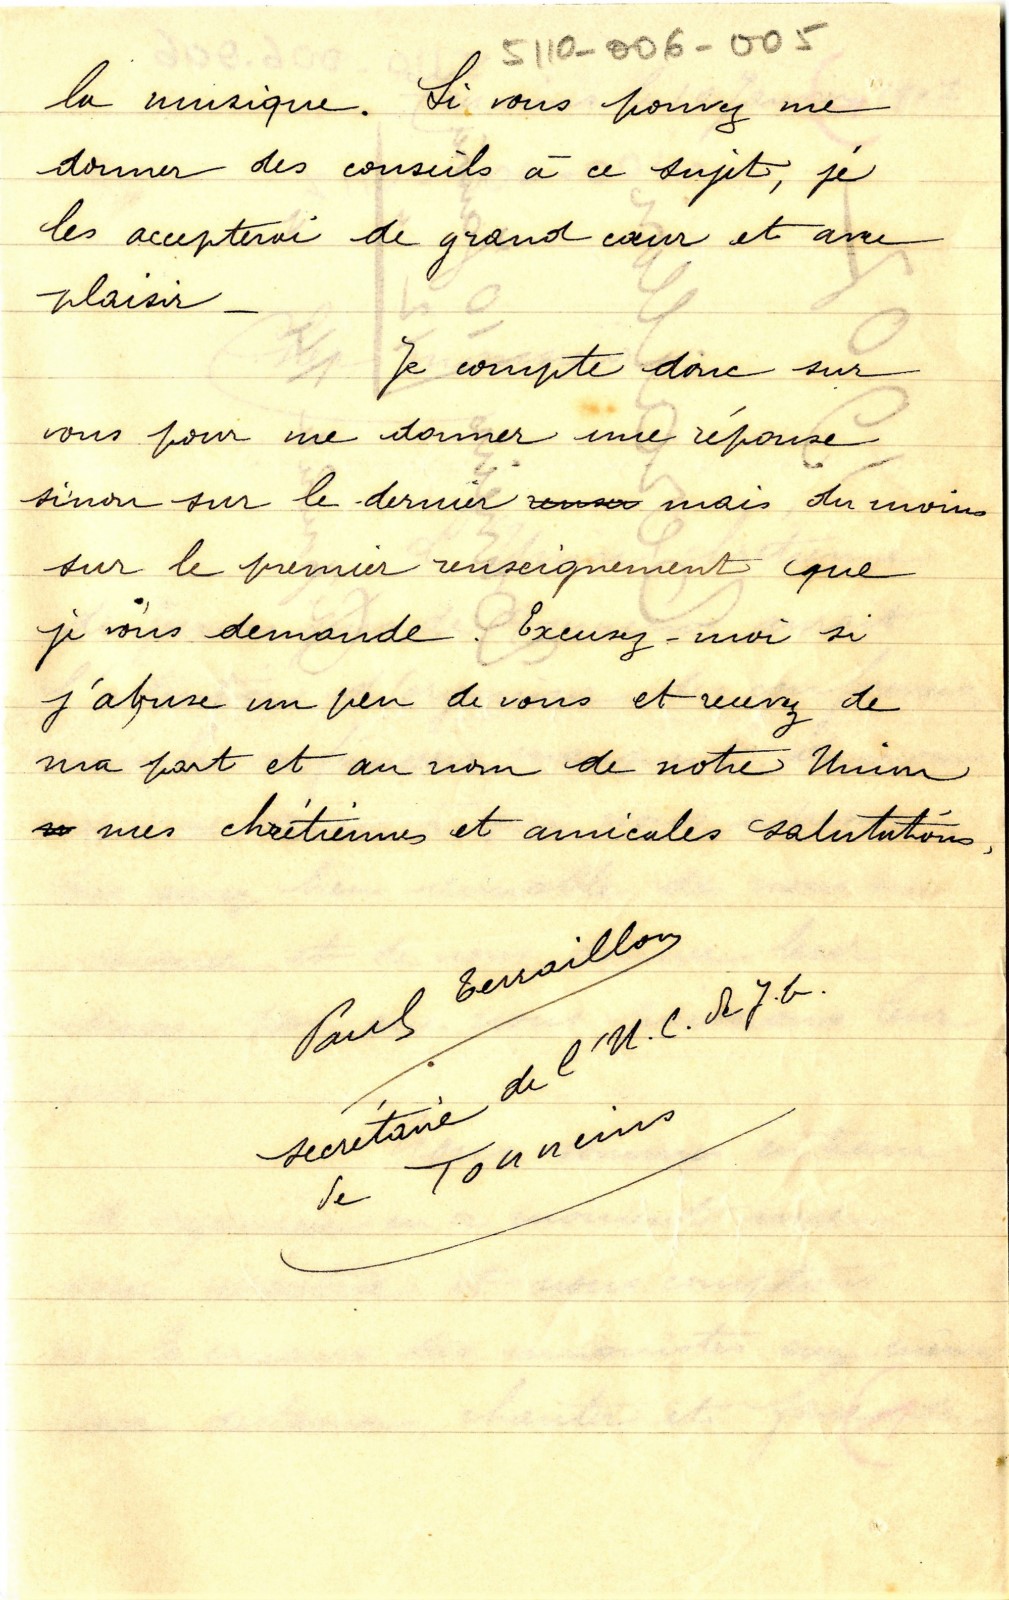 5110-006-005
la musique. Si vous pouvez me
donner des conseils à ce sujet, je
les accepterai de grand cœur et avec
plaisir _
Je compte donc sur
vous pour me donner une réponse
sinon sur le dernier mais du moins
sur le premier renseignement que
je vous demande. Excusez-moi si
j'abuse un peu de vous et recevez de
ma part et au nom de notre Union
mes chrétiennes et amicales salutations,
Paul Terraillon
secrétaire de l'U.C. de J.G.
de Tonneins